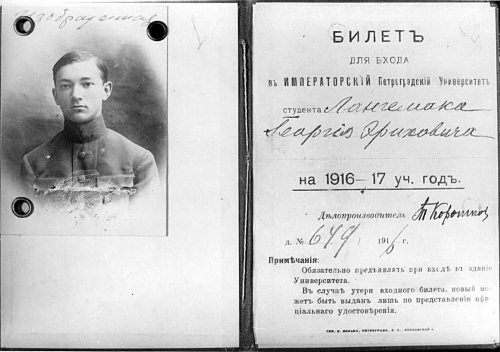 Изображенная
БИЛЕТЪ
ДЛЯ ВХОДА
въ ИМПЕРАТОРСКІЙ Петроградскій Университетъ
студента Лангемака
Георгія Эриховича
на 1916—17 уч. годъ.
Дѣлопроизводитель
д. № 649 1916 г.
Примѣчанія:
Обязательно предъявлять при входѣ въ зданіе
Университета.
Въ случаѣ утери входного билета, новый мо-
жетъ быть выданъ лишь по представленіи офи-
ціальнаго удостовѣренія.